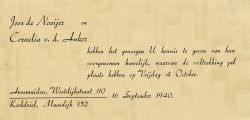 Joos de Nooijer
en
Cornelia v. d. Anker
hebben het genoegen U kennis te geven van hun
voorgenomen huwelijk, waarvan de voltrekking zal
plaats hebben op Vrijdag 4 October.
Arnemuiden, Westdijkstraat 110
16 September 1940.
Kerkdriel, Maasdijk 152